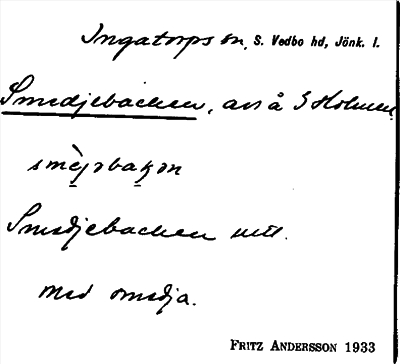 Ingatorps sn, S. Vedbo hd, Jönk. l.
Smedjebacken, avs å S Holmen
Smedjebacken
med smedja.
FRITZ ANDERSSON 1933